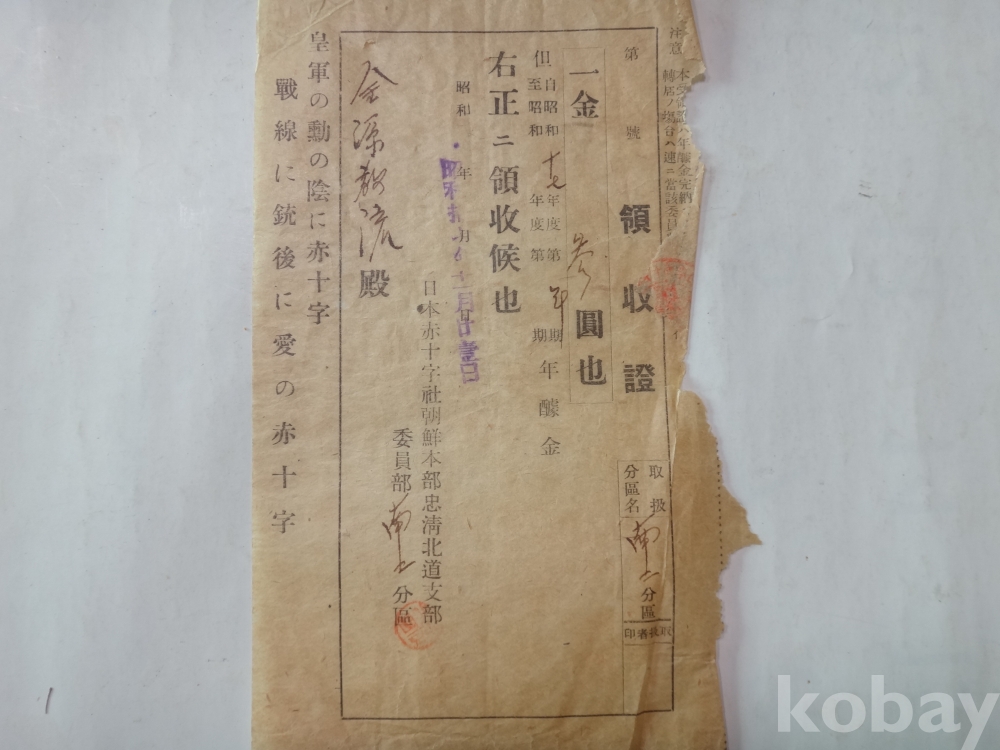 注意
轉居ノ場合ハ速ニ當該委員
第 號
領收證
取扱分區名
南二分區
取扱者印
一金 參 圓也
但 自昭和 年度第 期
至昭和 年度第 期
年醵金
右正ニ領收候也
昭和 年 月 日
日本赤十字社朝鮮本部忠淸北道支部
委員部 南二 分區
殿
皇軍の勳の陰に赤十字
戰線に銃後に愛の赤十字
kobay